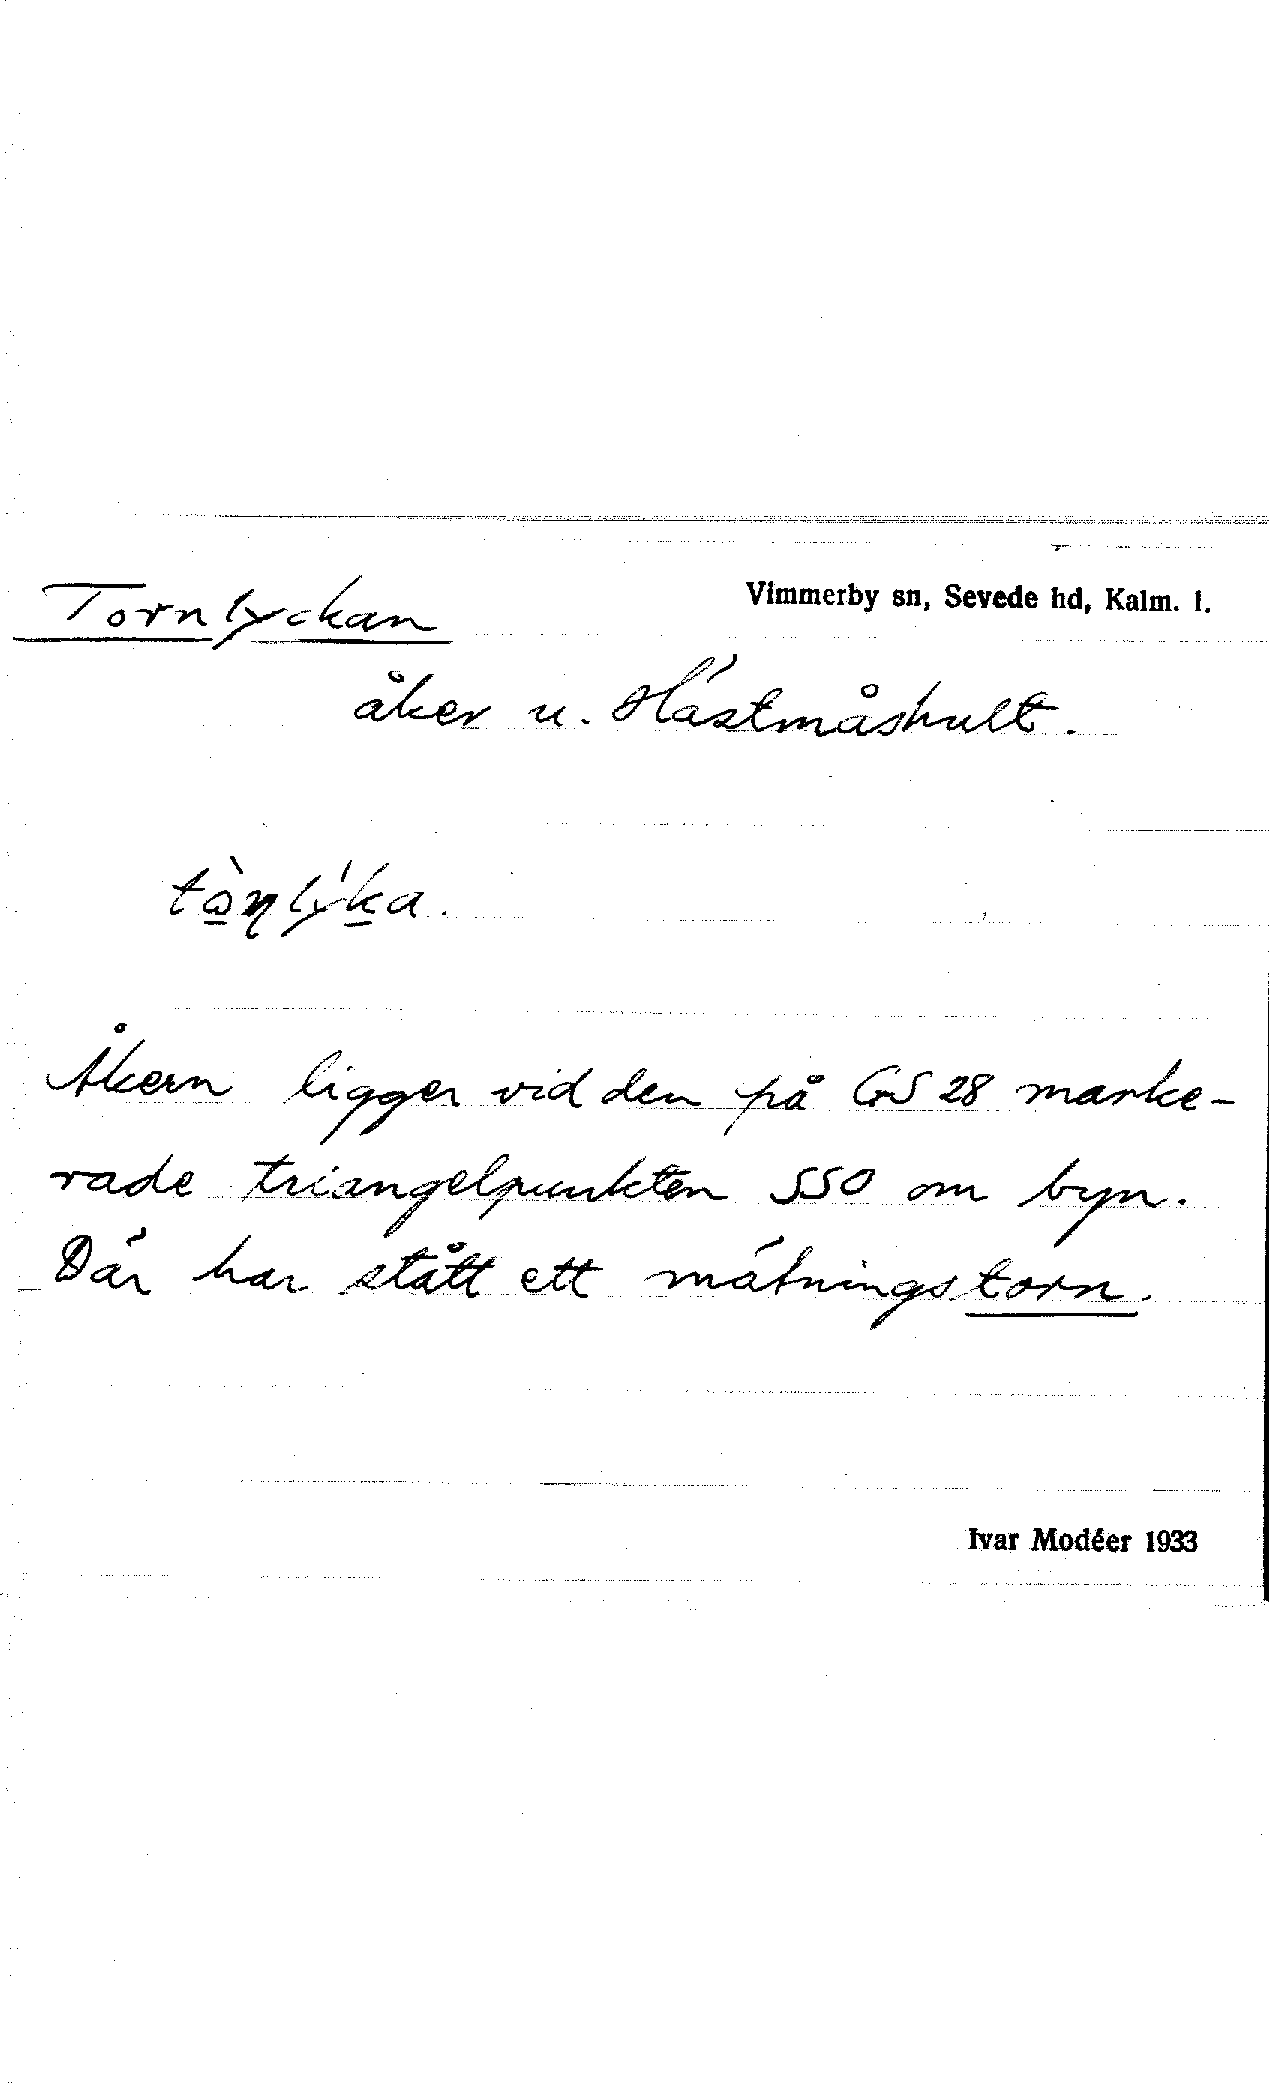 Tornlyckan
Vimmerby sn, Sevede hd, Kalm. l.
åker u. Hästmåshult.
tò̱ɳlýḵa.
Åkern ligger vid den på GS 28 marke-
rade triangelpunkten SSO om byn.
Där har stått ett mätningstorn.
Ivar Modéer 1933